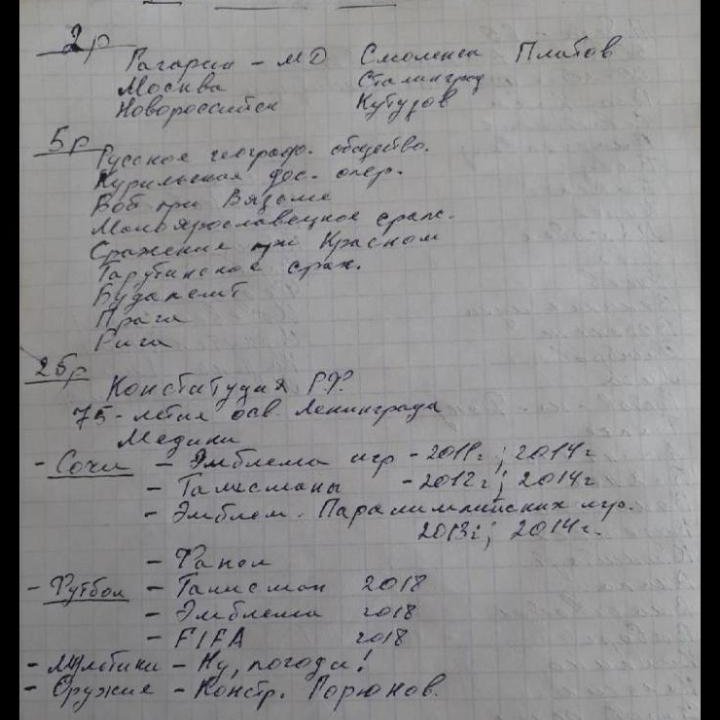 2р
Гагарин - МД Смоленск Платов
Москва Сталинград
Новороссийск Кутузов
5р
Русское географ. общество.
Курильская дес. опер.
Бой при Вязьме
Малоярославецкое сраж.
Сражение при Красном
Тарутинское сраж.
Будапешт
Прага
Рига
25р
Конституция РФ.
75-летия осв Ленинграда
Медики
- Сочи - Эмблема игр - 2011г; 2014г
- Талисманы - 2012г; 2014г
- Эмблем. Паралимпийских игр.
2013г; 2014г.
- Факел
- Футбол - Талисман 2018
- Эмблема 2018
- FIFA 2018
- Мультики - Ну, погоди!
- Оружие - Констр. Горюнов.